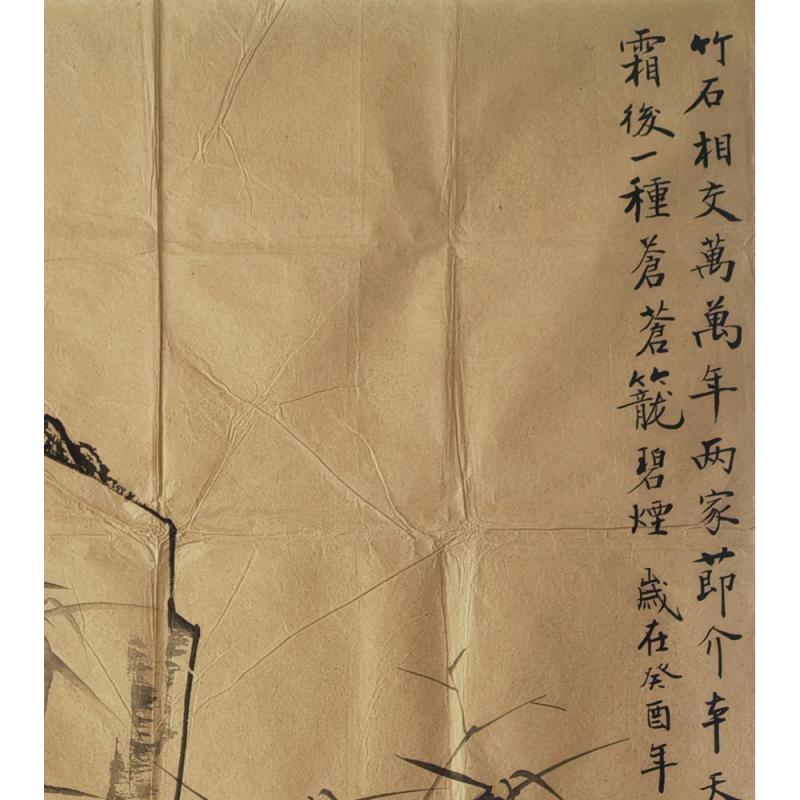 竹石相交萬萬年两家節介本天
霜後一種蒼蒼籠碧煙 歲在癸酉年